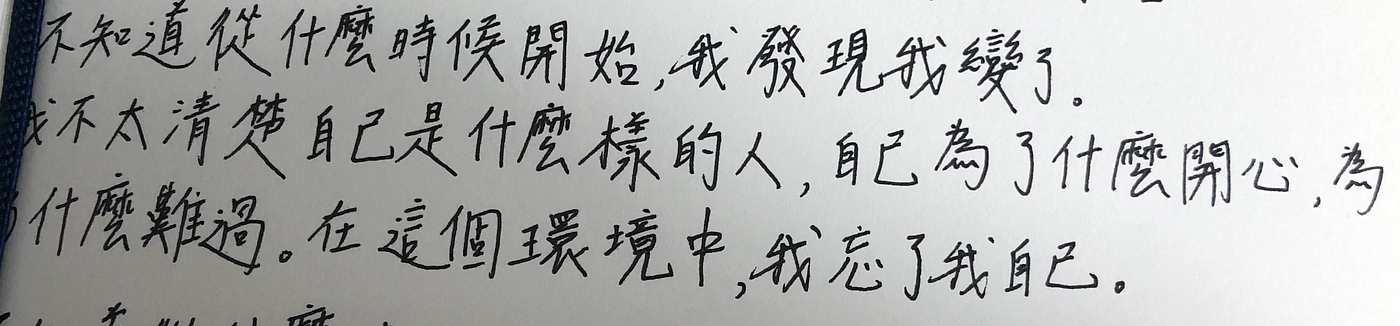 不知道從什麼時候開始,我發現我變了。
我不太清楚自己是什麼樣的人,自己為了什麼開心,為
了什麼難過。在這個環境中,我忘了我自己。